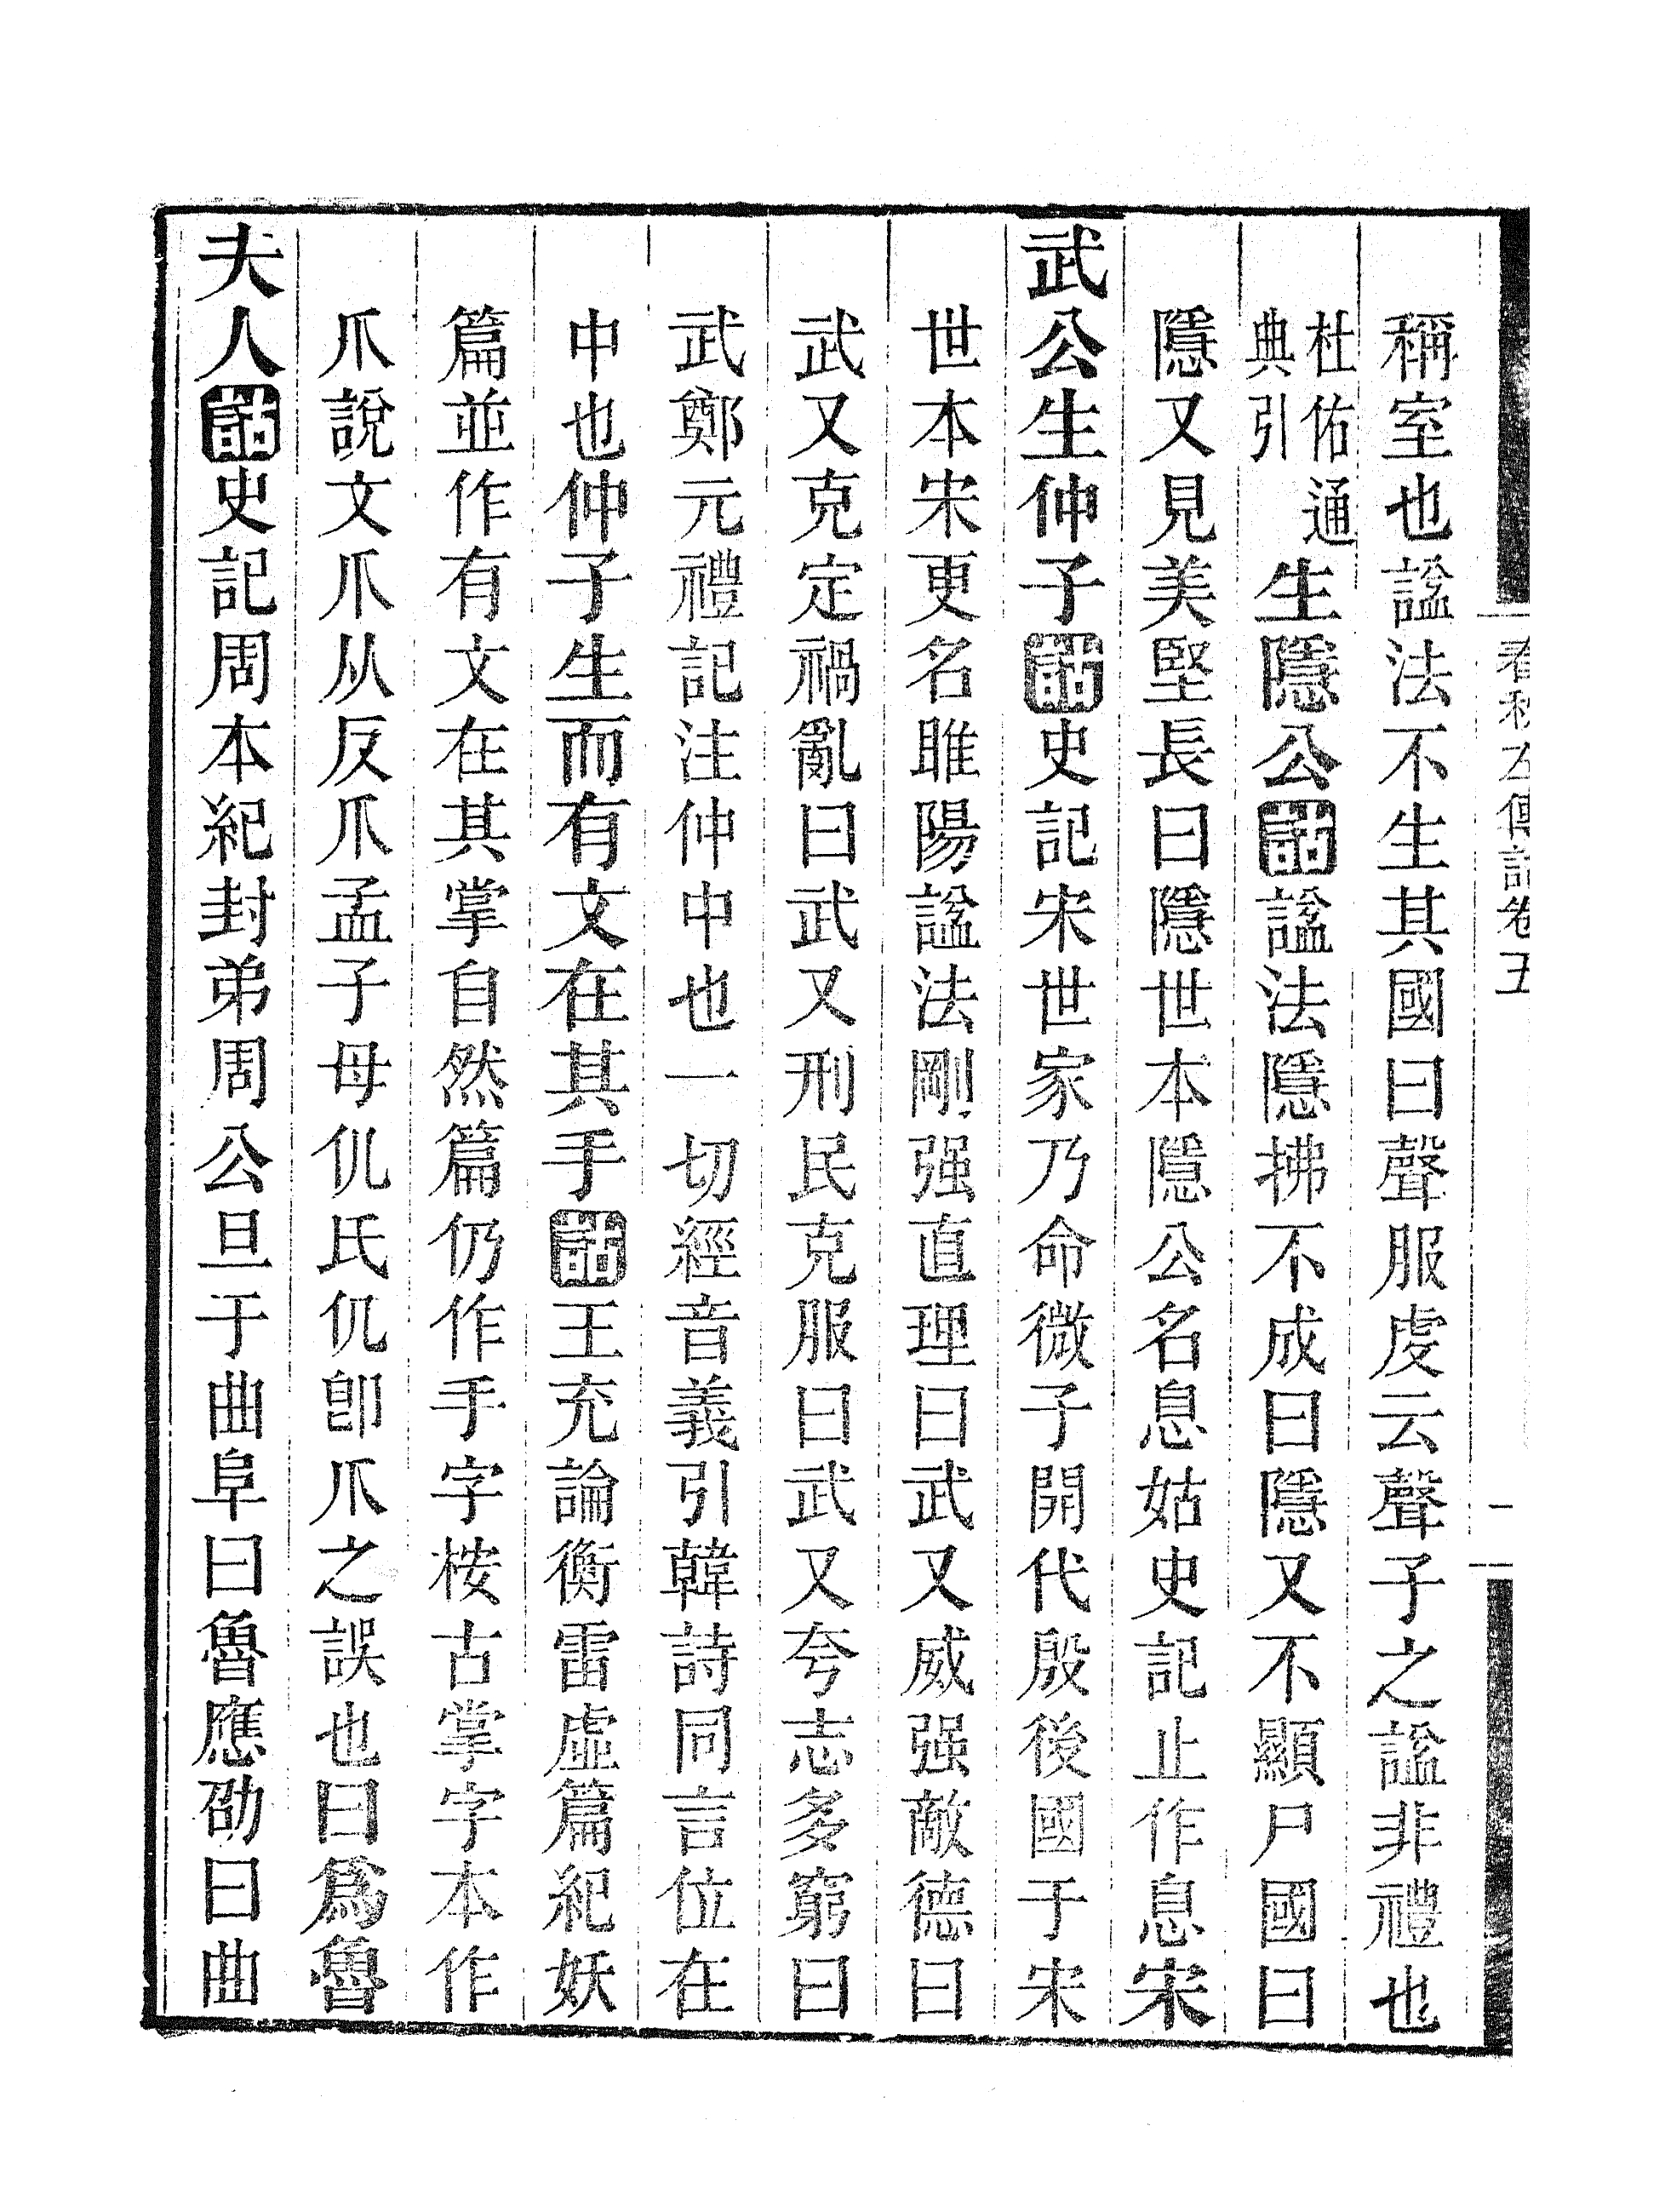 春秋左傳詁卷五
一
稱室也諡法不生其國曰聲服虔云聲子之諡非禮也
杜佑通典引生隱公詁諡法隱拂不成曰隱又不顯尸國曰
隱又見美堅長曰隱世本隱公名息姑史記止作息宋
武公生仲子詁史記宋世家乃命微子開代殷後國于宋
世本宋更名睢陽諡法剛强直理曰武又威强敵德曰
武又克定禍亂曰武又刑民克服曰武又夸志多窮曰
武鄭元禮記注仲中也一切經音義引韓詩同言位在
中也仲子生而有文在其手詁王充論衡雷虛篇紀妖
篇並作有文在其掌自然篇仍作手字桉古掌字本作
爪說文爪从反爪孟子母仉氏仉卽爪之誤也曰爲魯
夫人詁史記周本紀封弟周公旦于曲阜曰魯應劭曰曲